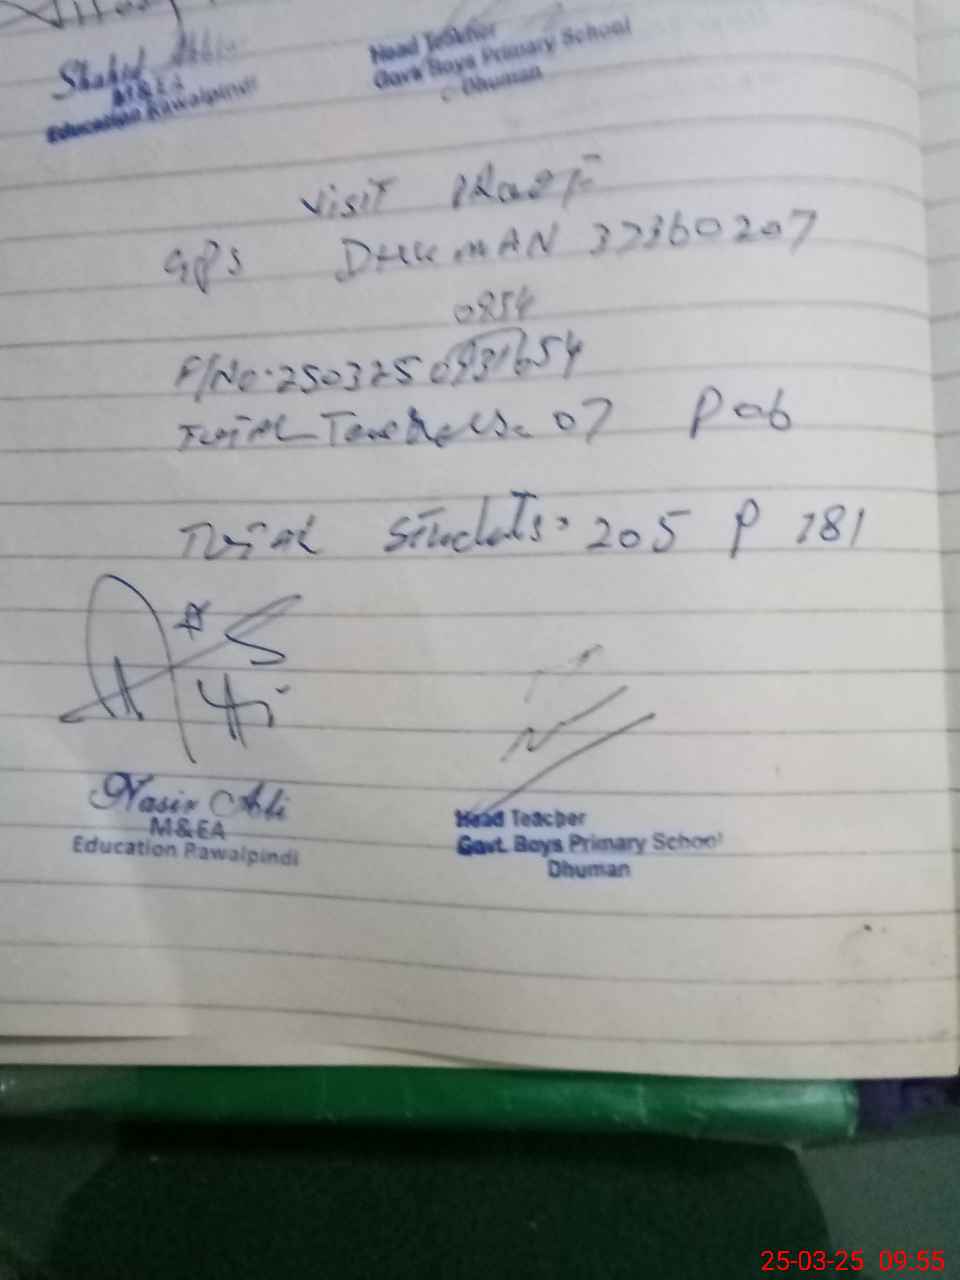 Shahid
M&EA
Education Rawalpindi
Head Teacher
Govt Boys Primary School
Dhuman
Visit PRooF
GPS DHUMAN 37360207
0854
F/No. 250325 0931654
Total Teachers. 07 P 06
Total Students: 205 P 181
Nasir Ali
M&EA
Education Rawalpindi
Head Teacher
Govt. Boys Primary School
Dhuman
25-03-25 09:55